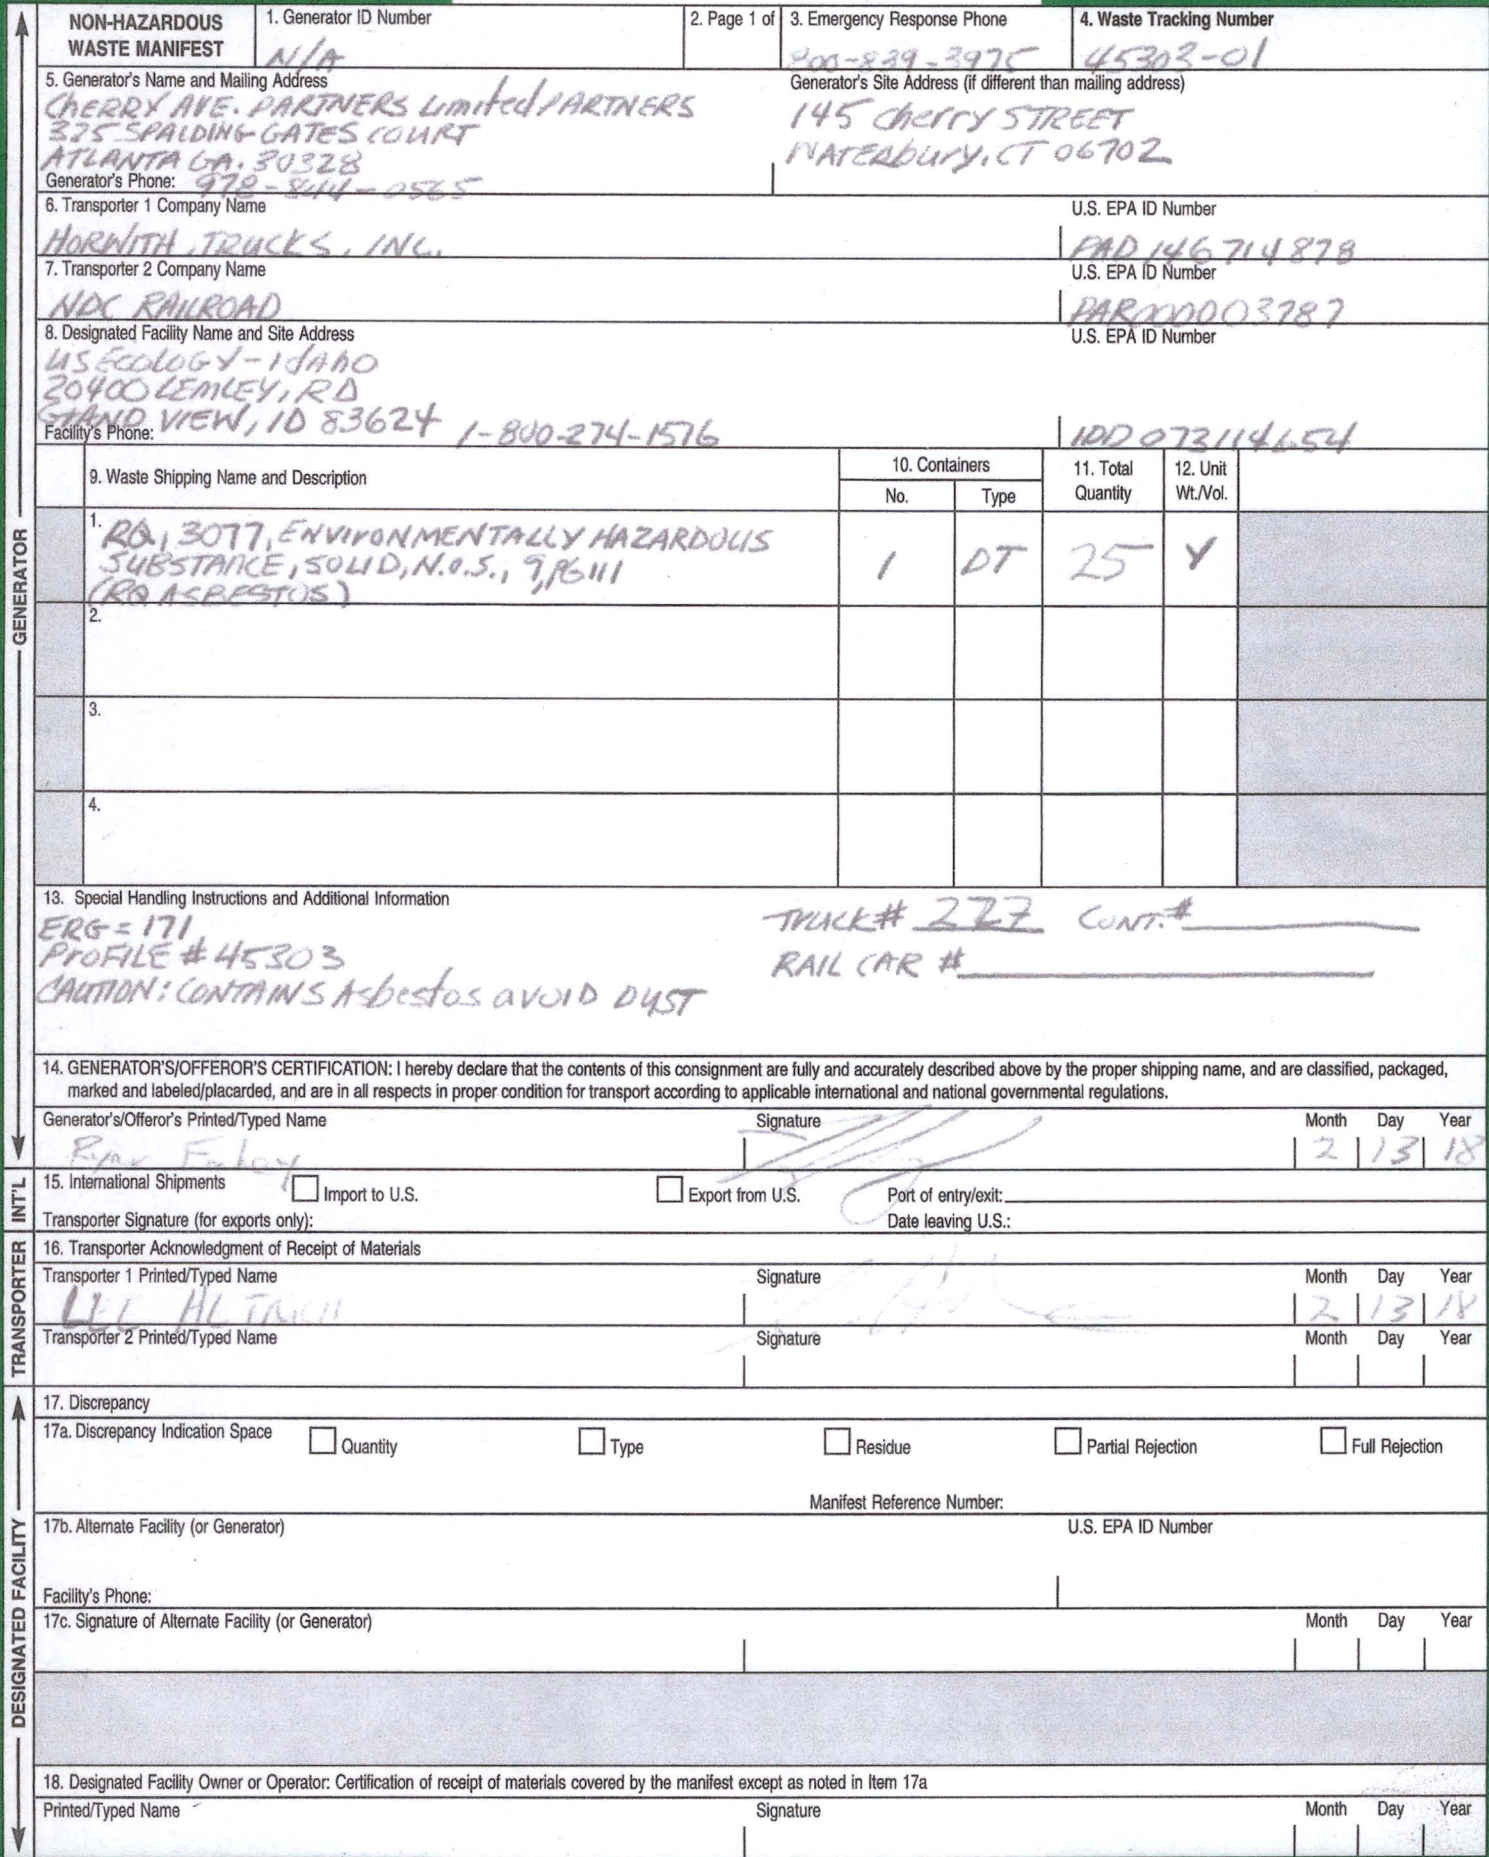 NON-HAZARDOUS WASTE MANIFEST
1. Generator ID Number
N/A
2. Page 1 of
3. Emergency Response Phone
800-839-3975
4. Waste Tracking Number
45303-01
5. Generator's Name and Mailing Address
CHERRY AVE. PARTNERS Limited PARTNERS
325 SPALDING GATES COURT
ATLANTA GA. 30328
Generator's Phone: 978-844-0565
Generator's Site Address (if different than mailing address)
145 Cherry STREET
WATERbury, CT 06702
6. Transporter 1 Company Name
HORWITH TRUCKS, INC.
U.S. EPA ID Number
PAD 146714878
7. Transporter 2 Company Name
NDC RAILROAD
U.S. EPA ID Number
PAR000003787
8. Designated Facility Name and Site Address
US ECOLOGY-IdAhO
20400 LEMLEY, RD
GRAND VIEW, ID 83624 1-800-274-1576
Facility's Phone:
U.S. EPA ID Number
IDD 073114654
9. Waste Shipping Name and Description
10. Containers
No.
Type
11. Total Quantity
12. Unit Wt./Vol.
1. RQ, 3077, ENVIRONMENTALLY HAZARDOUS
SUBSTANCE, SOLID, N.O.S., 9, PG III
(RQ ASBESTOS)
1 DT 25 Y
2.
3.
4.
13. Special Handling Instructions and Additional Information
ERG = 171
PROFILE # 45303
CAUTION: CONTAINS Asbestos avoID DUST
TRUCK# 227 CONT.#
RAIL CAR #
14. GENERATOR'S/OFFEROR'S CERTIFICATION: I hereby declare that the contents of this consignment are fully and accurately described above by the proper shipping name, and are classified, packaged,
marked and labeled/placarded, and are in all respects in proper condition for transport according to applicable international and national governmental regulations.
Generator's/Offeror's Printed/Typed Name
Signature
Month Day Year
Ryan
2 13 18
15. International Shipments
Import to U.S.
Export from U.S.
Port of entry/exit:
Transporter Signature (for exports only):
Date leaving U.S.:
16. Transporter Acknowledgment of Receipt of Materials
Transporter 1 Printed/Typed Name
Signature
Month Day Year
LEE
2 13 18
Transporter 2 Printed/Typed Name
Signature
Month Day Year
17. Discrepancy
17a. Discrepancy Indication Space
Quantity
Type
Residue
Partial Rejection
Full Rejection
Manifest Reference Number:
17b. Alternate Facility (or Generator)
U.S. EPA ID Number
Facility's Phone:
17c. Signature of Alternate Facility (or Generator)
Month Day Year
18. Designated Facility Owner or Operator: Certification of receipt of materials covered by the manifest except as noted in Item 17a
Printed/Typed Name
Signature
Month Day Year
GENERATOR
INT'L
TRANSPORTER
DESIGNATED FACILITY